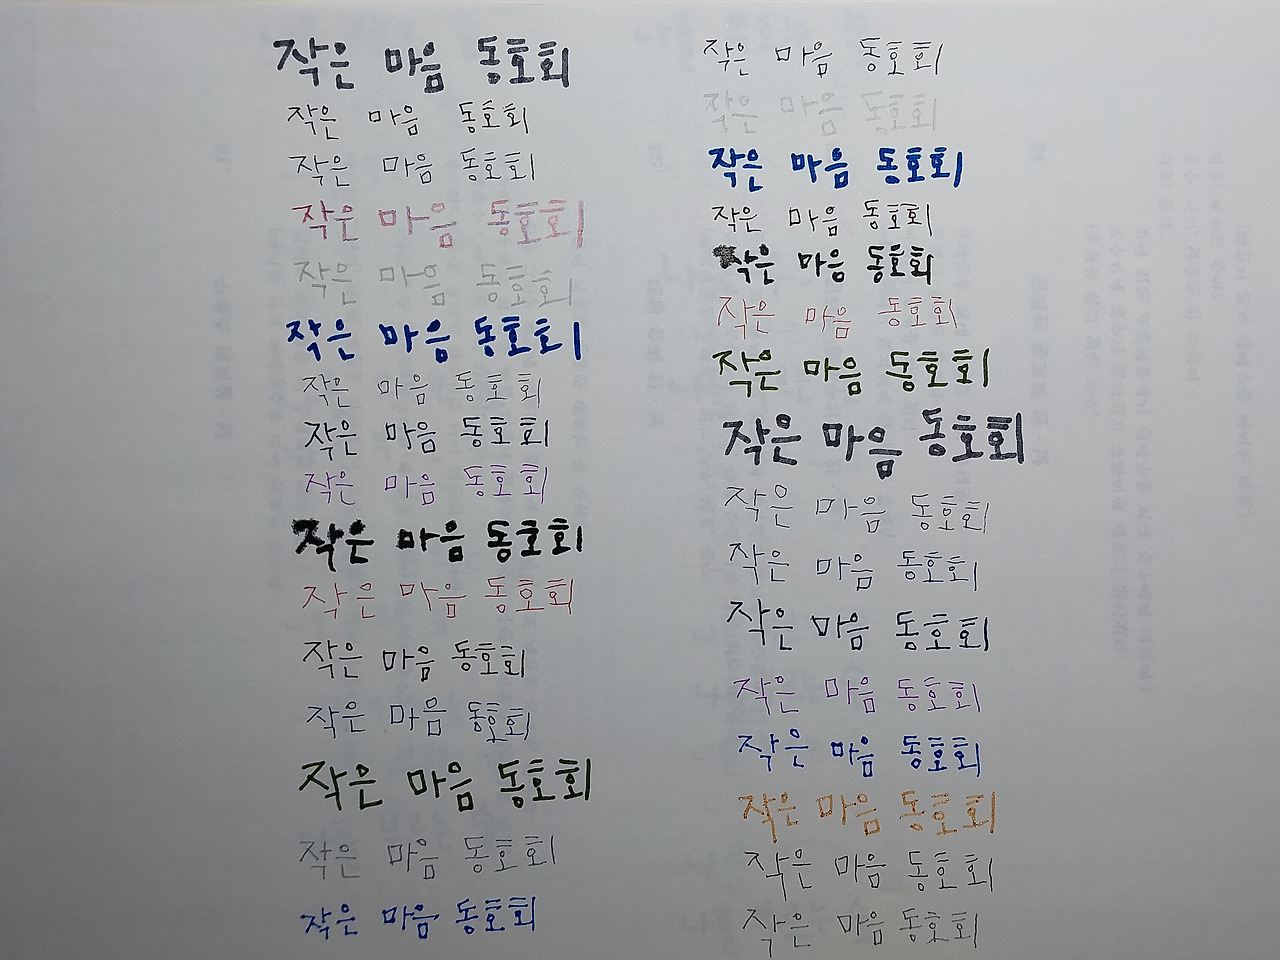 작은 마음 동호회
작은 마음 동호회
작은 마음 동호회
작은 마음 동호회
작은 마음 동호회
작은 마음 동호회
작은 마음 동호회
작은 마음 동호회
작은 마음 동호회
작은 마음 동호회
작은 마음 동호회
작은 마음 동호회
작은 마음 동호회
작은 마음 동호회
작은 마음 동호회
작은 마음 동호회
작은 마음 동호회
작은 마음 동호회
작은 마음 동호회
작은 마음 동호회
작은 마음 동호회
작은 마음 동호회
작은 마음 동호회
작은 마음 동호회
작은 마음 동호회
작은 마음 동호회
작은 마음 동호회
작은 마음 동호회
작은 마음 동호회
작은 마음 동호회
작은 마음 동호회
작은 마음 동호회